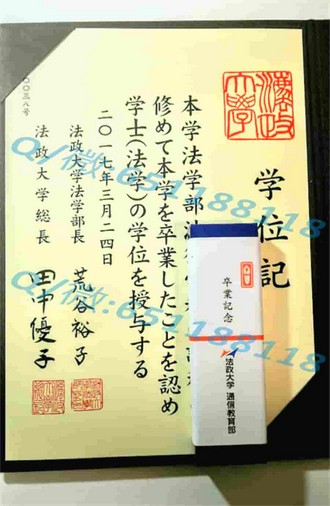 学位記
本学法学部
修めて本学を卒業したことを認め
学士(法学)の学位を授与する
二〇一七年三月二四日
法政大学法学部長
荒谷裕子
法政大学総長
田中優子
卒業記念
法政大学 通信教育部
Q/微:651188118
Q/微:651188118